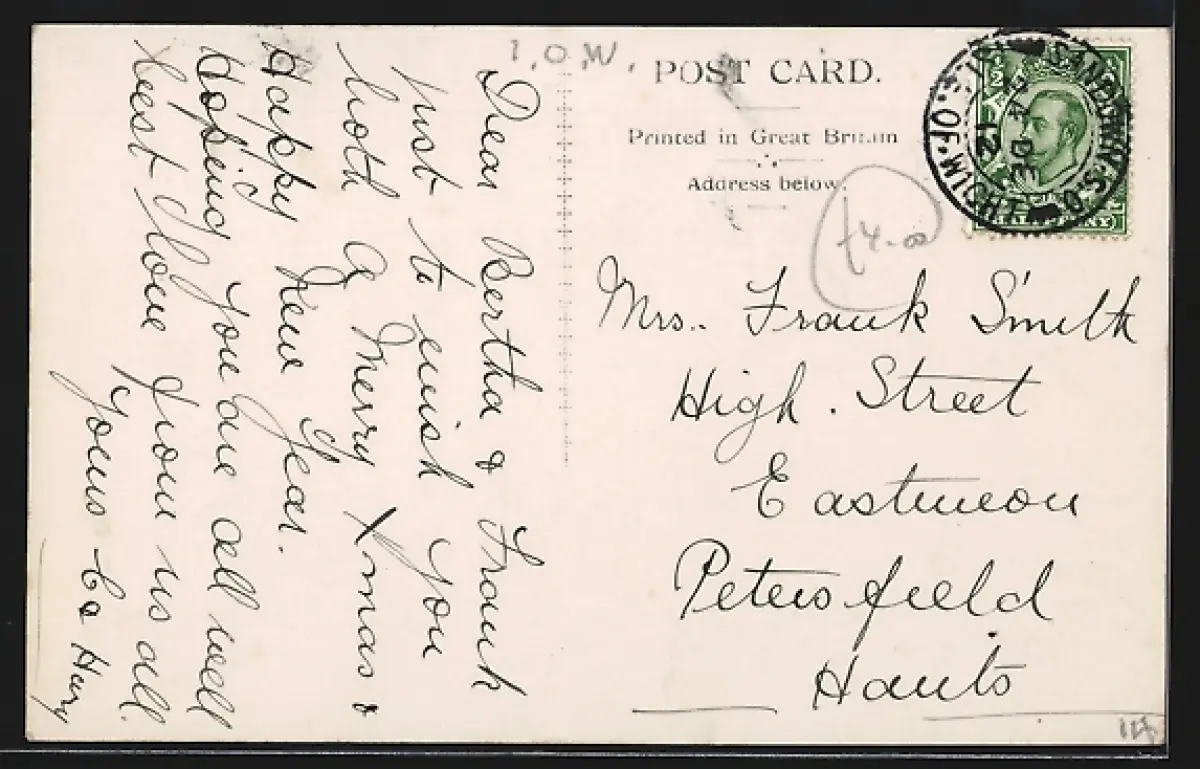 I.O.W.
POST CARD.
Printed in Great Britain
Address below.
SANDOWN S.O.
ISLE OF WIGHT
DE
12
HALFPENNY
Dear Bertha & Frank
just to wish you
both a Merry Xmas &
Happy New Year.
Hoping you are all well
best Love from us all.
Yours
£4.00
Mrs.. Frank Smith
High. Street
Eastmeon
Petersfield
Hants